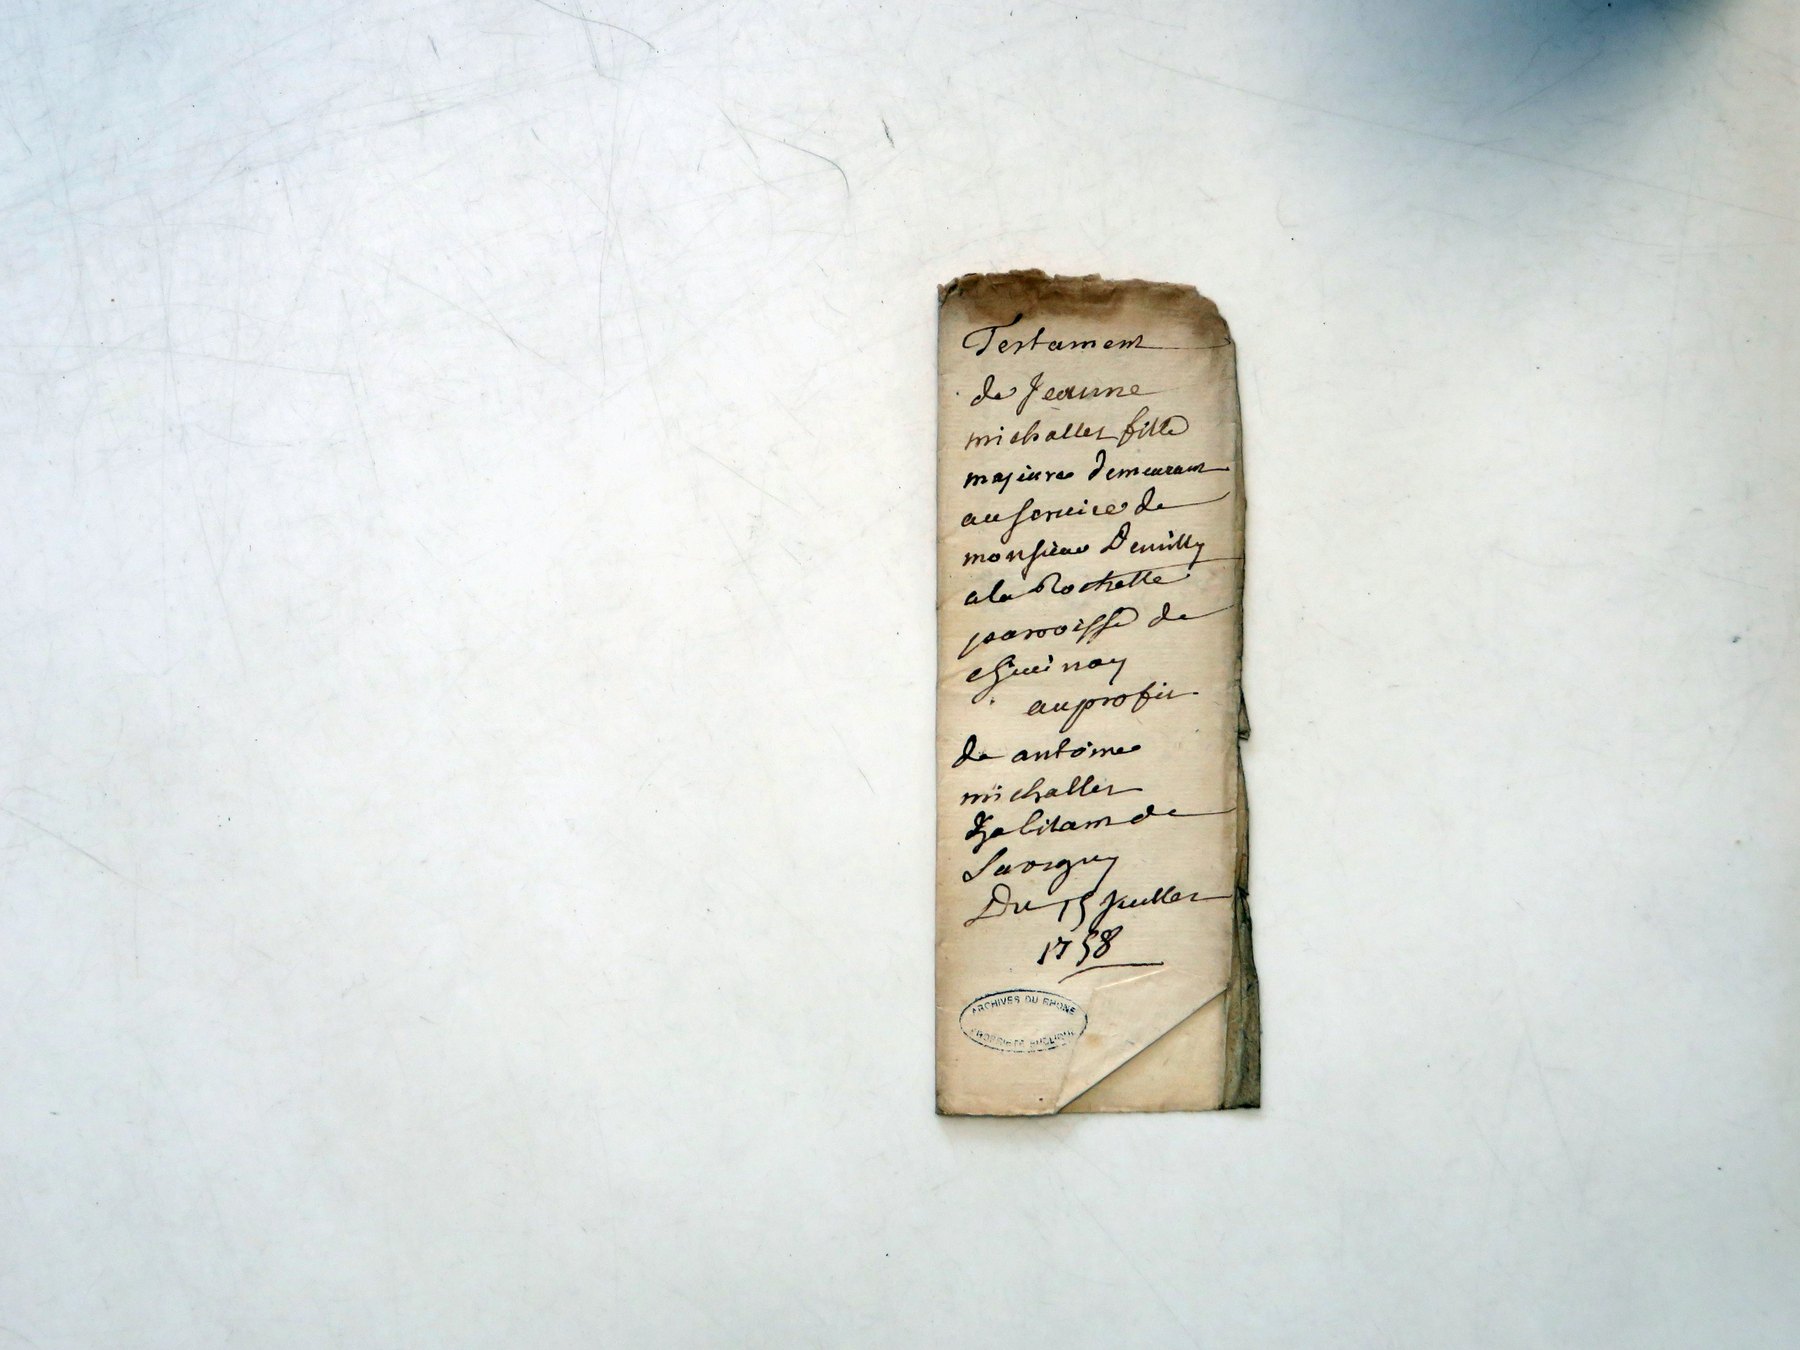 Testament
de Jeanne
michallet fille
majeure demeurant
au service de
monsieur Deuilly
a la Rochette
paroisse de
chuinay
au profit
de antoine
michallet
habitant de
Savigny
Du 15 Juillet
1758
ARCHIVES DU RHONE
PROPRIETE PUBLIQUE